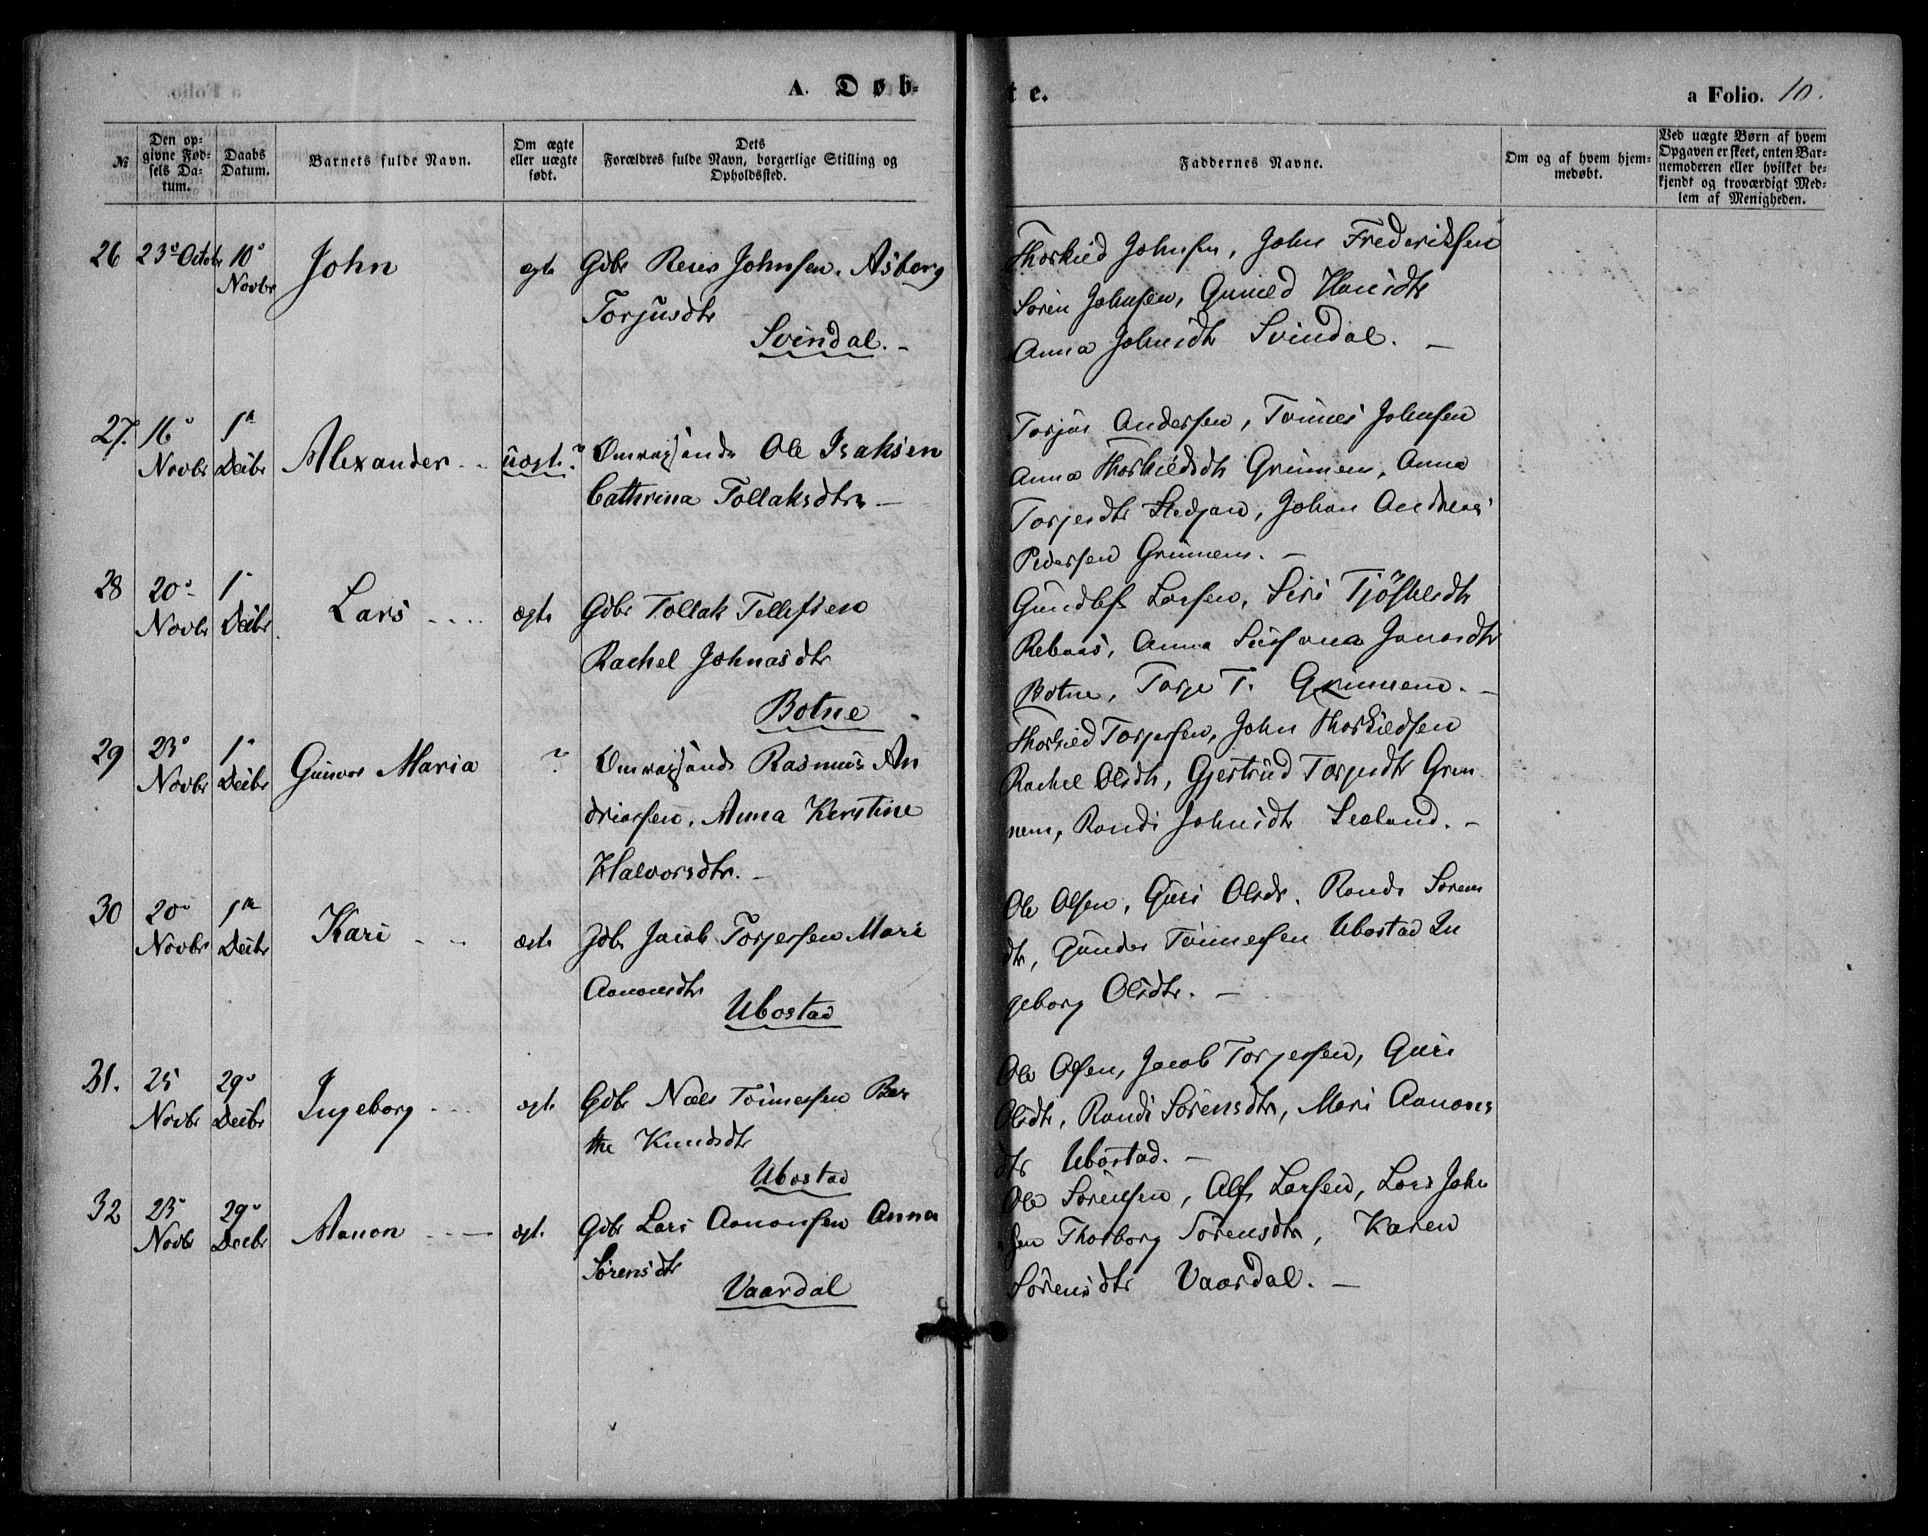 A. Døb-
№
Den op-
givne Fød-
sels Da-
tum.
Daabs
Datum.
Barnets fulde Navn.
Om ægte
eller uægte
født.
Dets
Forældres fulde Navn, borgerlige Stilling og
Opholdssted.
26 23de Octobr 10de John ægte Gdbr Reier Johnsen. Asborg
Novbr
Torjusdtr
Svindal. –
27. 16de 1ste
Novbr Decbr Alexander uægte? Omvajsende Ole Isaksen
Cathrina Tollaksdtr –
28 20de 1ste
Novbr Decbr. Lars ægte Gdbr Tollak Tellefsen
Rachel Johnasdtr
Botne
29 23de 1ste
Novbr Decbr Gunvor Maria ? Omvajsende Rasmus An
driassen, Anna Kirstine
Halvorsdtr. –
30 20de 1ste
Novbr Decbr Kari ægte Gdbr Jacob Torjersen Mari
Aanonsdtr
Ubostad
31. 25 29de
Novbr Decbr Ingeborg ægte Gdbr Niels Tønnessen Ber
the Knudsdtr
Ubostad
32 25 29de
Novbr Decbr Aanon ægte Gdbr Lars Aanonsen Anna
Sørensdtr
Vaardal
te.
a Folio. 10.
Faddernes Navne.
Om og af hvem hjem-
medøbt.
Ved uægte Børn af hvem
Opgaven er skeet, enten Bar-
nemoderen eller hvilket be-
kjendt og troværdigt Med-
lem af Menigheden.
Thorkild Johnsen, John Frederiksen
Søren Johnsen, Gunild Hansdtr
Anna Johnsdtr Svindal. –
Torjus Andersen, Tønnes Johnsen
Anna Thorkildsdtr Grimnem, Anna
Torjesdtr Stedjan, Johan Andreas
Pedersen Grimnem. –
Gundlef Larsen, Siri Tjøstelsdtr
Rebaas, Anna Susana Jonasdtr
Botne, Torje T. Grimnem. –
Thorkild Torjersen, John Thorkildsen
Rachel Olsdtr, Gjertrud Torjesdtr Grim
nem, Randi Johnsdtr Sæland. –
Ole Olsen, Guri Olsdtr. Randi Sørens
dtr, Gunder Tønnessen Ubostad In
geborg Olsdtr. –
Ole Olsen, Jacob Torjersen, Guri
Olsdtr, Randi Sørensdtr, Mari Aanons
dtr Ubostad. –
Ole Sørensen, Alf Larsen, Lars John
sen Thorborg Sørensdtr, Karen
Sørensdtr Vaardal. –